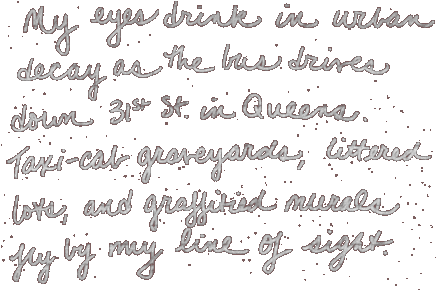 My eyes drink in urban
decay as the bus drives
down 31st St. in Queens.
Taxi-cab graveyards, littered
lots, and graffitied murals
fly by my line of sight.